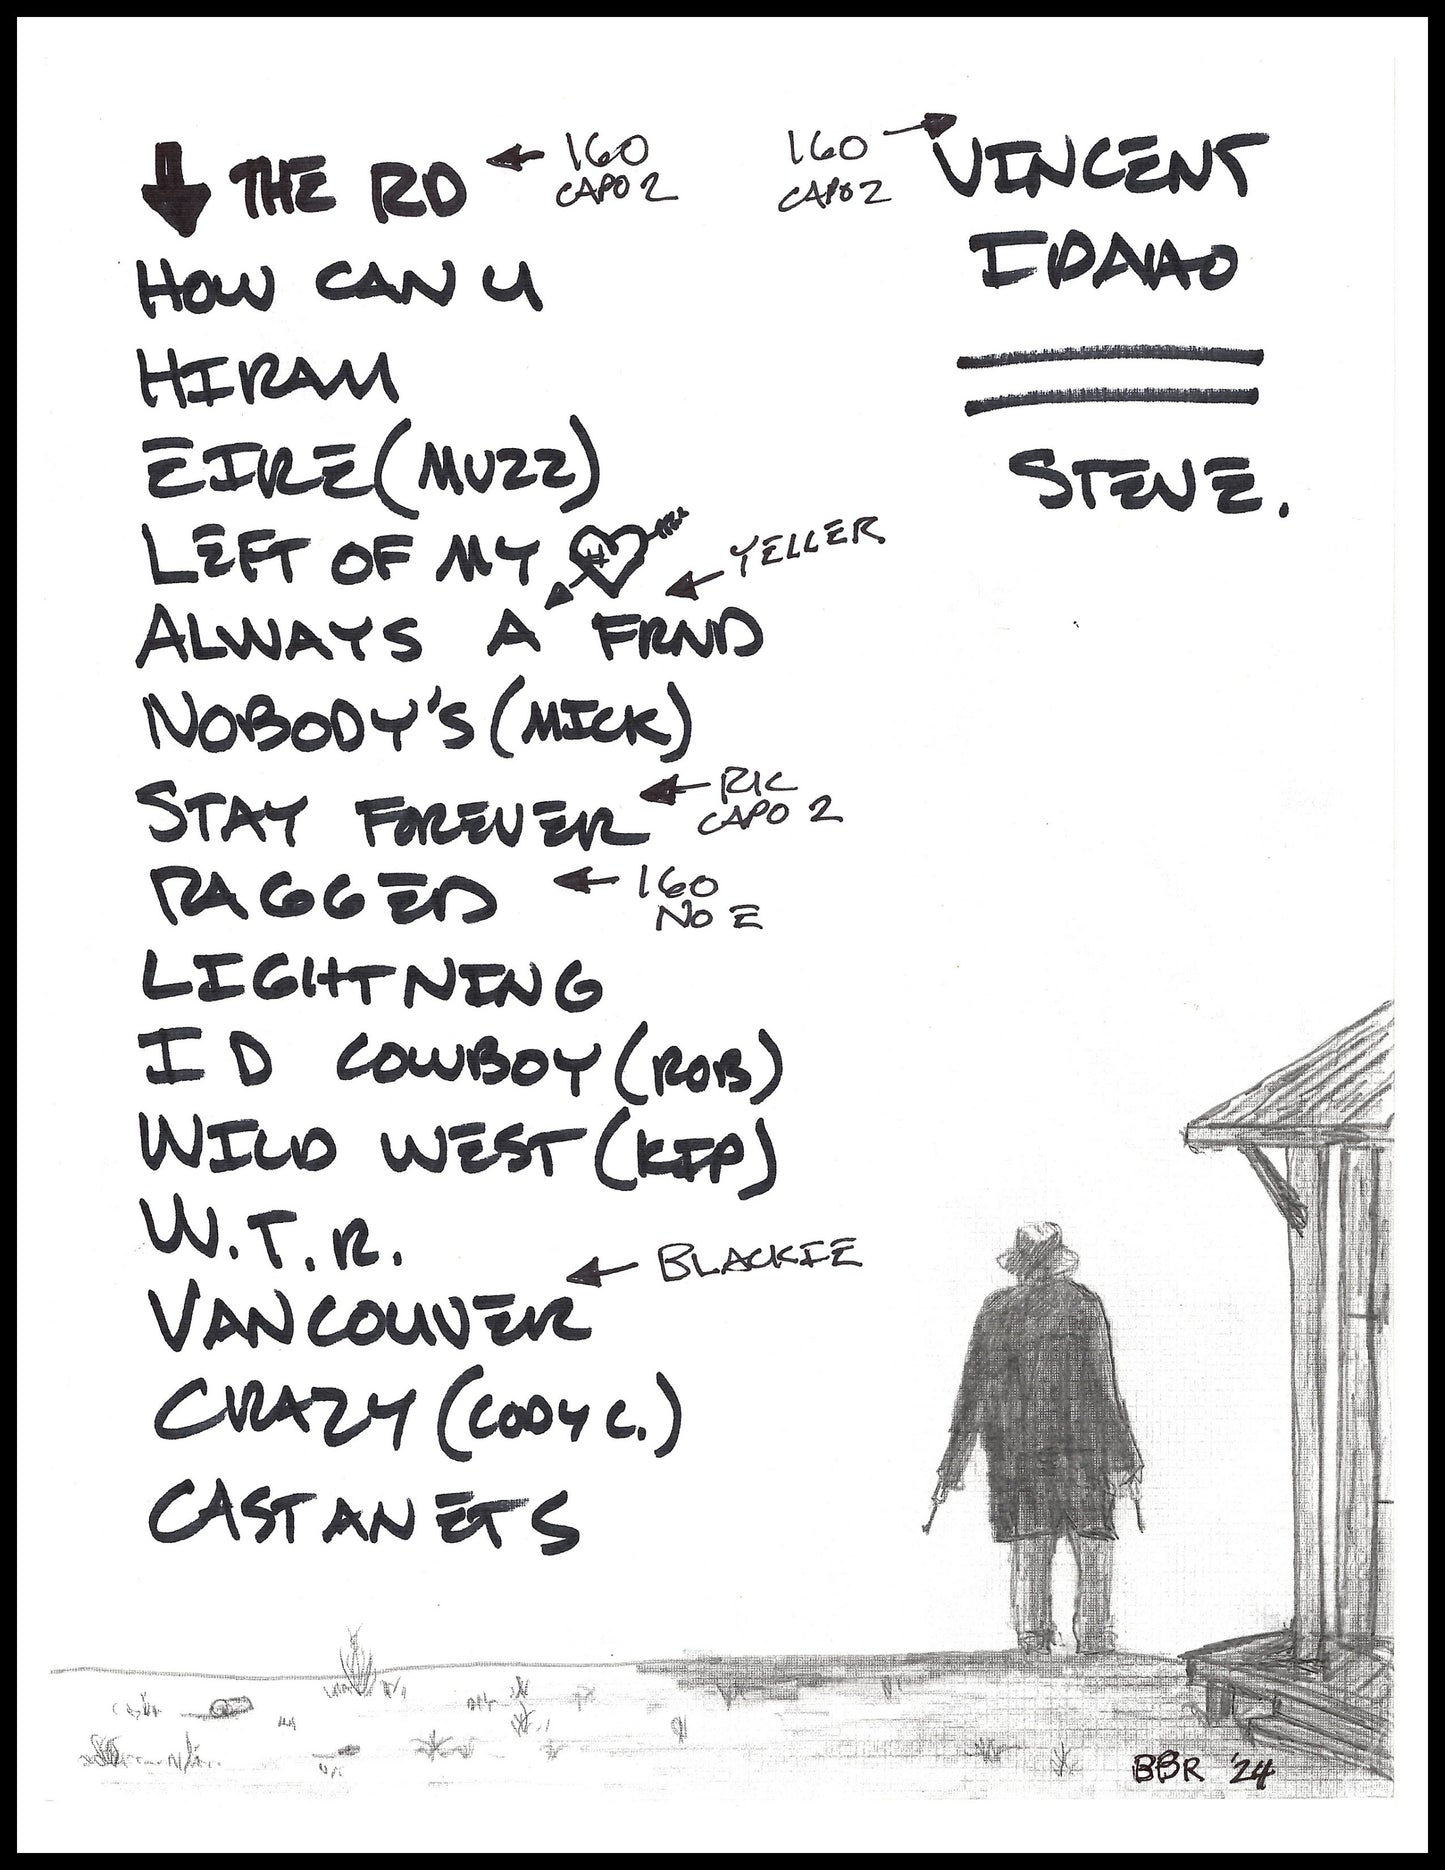 THE RD
160
CAPO 2
HOW CAN U
HIRAM
EIRE (MUZZ)
LEFT OF MY
YELLER
ALWAYS A FRND
NOBODY'S (MICK)
STAY FOREVER
RIC
CAPO 2
RAGGED
160
NO E
LIGHTNING
I D COWBOY (ROB)
WILD WEST (KIP)
W.T.R.
BLACKIE
VANCOUVER
CRAZY (CODY C.)
CASTANETS
160
CAPO 2
VINCENT
IDAHO
STEVE.
BBR '24